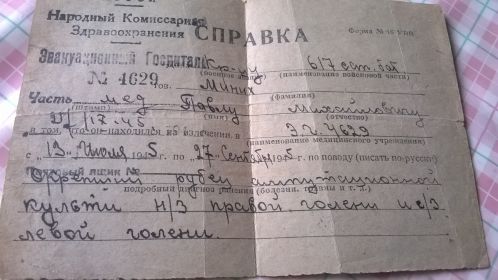 Народный Комиссариат
Здравоохранения
СПРАВКА
Форма № 16
Эвакуационный Госпиталь
№ 4629
617 сап. бат
(наименование войсковой части)
тов. Миних
(фамилия)
Часть мед
Павлу Михайловичу
(штамп) (имя) (отчество)
в том, что он находился на излечении в
ЭГ 4629
(наименование медицинского учреждения)
с „13" июля 1945 г. по „27" Сентяб 1945 г. по поводу (писать по-русски)
Почтовый ящик №
подробный диагноз ранения (болезни, травмы и т. д.)
рубец ампутационной
культи н/3 правой голени и с/3
левой голени.